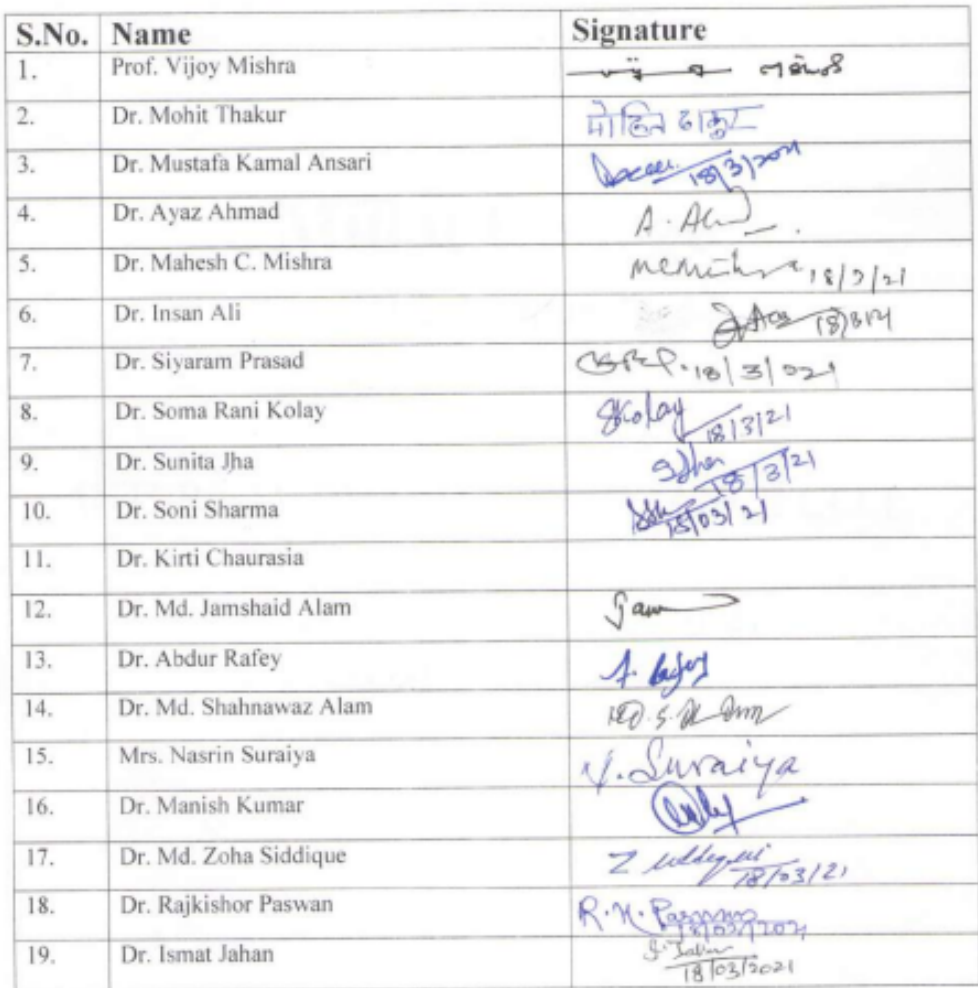 S.No. Name Signature
1. Prof. Vijoy Mishra
2. Dr. Mohit Thakur मोहित ठाकुर
3. Dr. Mustafa Kamal Ansari 18/3/2021
4. Dr. Ayaz Ahmad A. Ah
5. Dr. Mahesh C. Mishra MCMishra 18/3/21
6. Dr. Insan Ali
7. Dr. Siyaram Prasad 18/3/021
8. Dr. Soma Rani Kolay SKolay 18/3/21
9. Dr. Sunita Jha SJha 18/3/21
10. Dr. Soni Sharma 18/03/21
11. Dr. Kirti Chaurasia
12. Dr. Md. Jamshaid Alam Jam
13. Dr. Abdur Rafey A. Rafey
14. Dr. Md. Shahnawaz Alam
15. Mrs. Nasrin Suraiya N. Suraiya
16. Dr. Manish Kumar
17. Dr. Md. Zoha Siddique Z 18/03/21
18. Dr. Rajkishor Paswan R.K. Paswan 18/03/2021
19. Dr. Ismat Jahan I. Jahan 18/03/2021